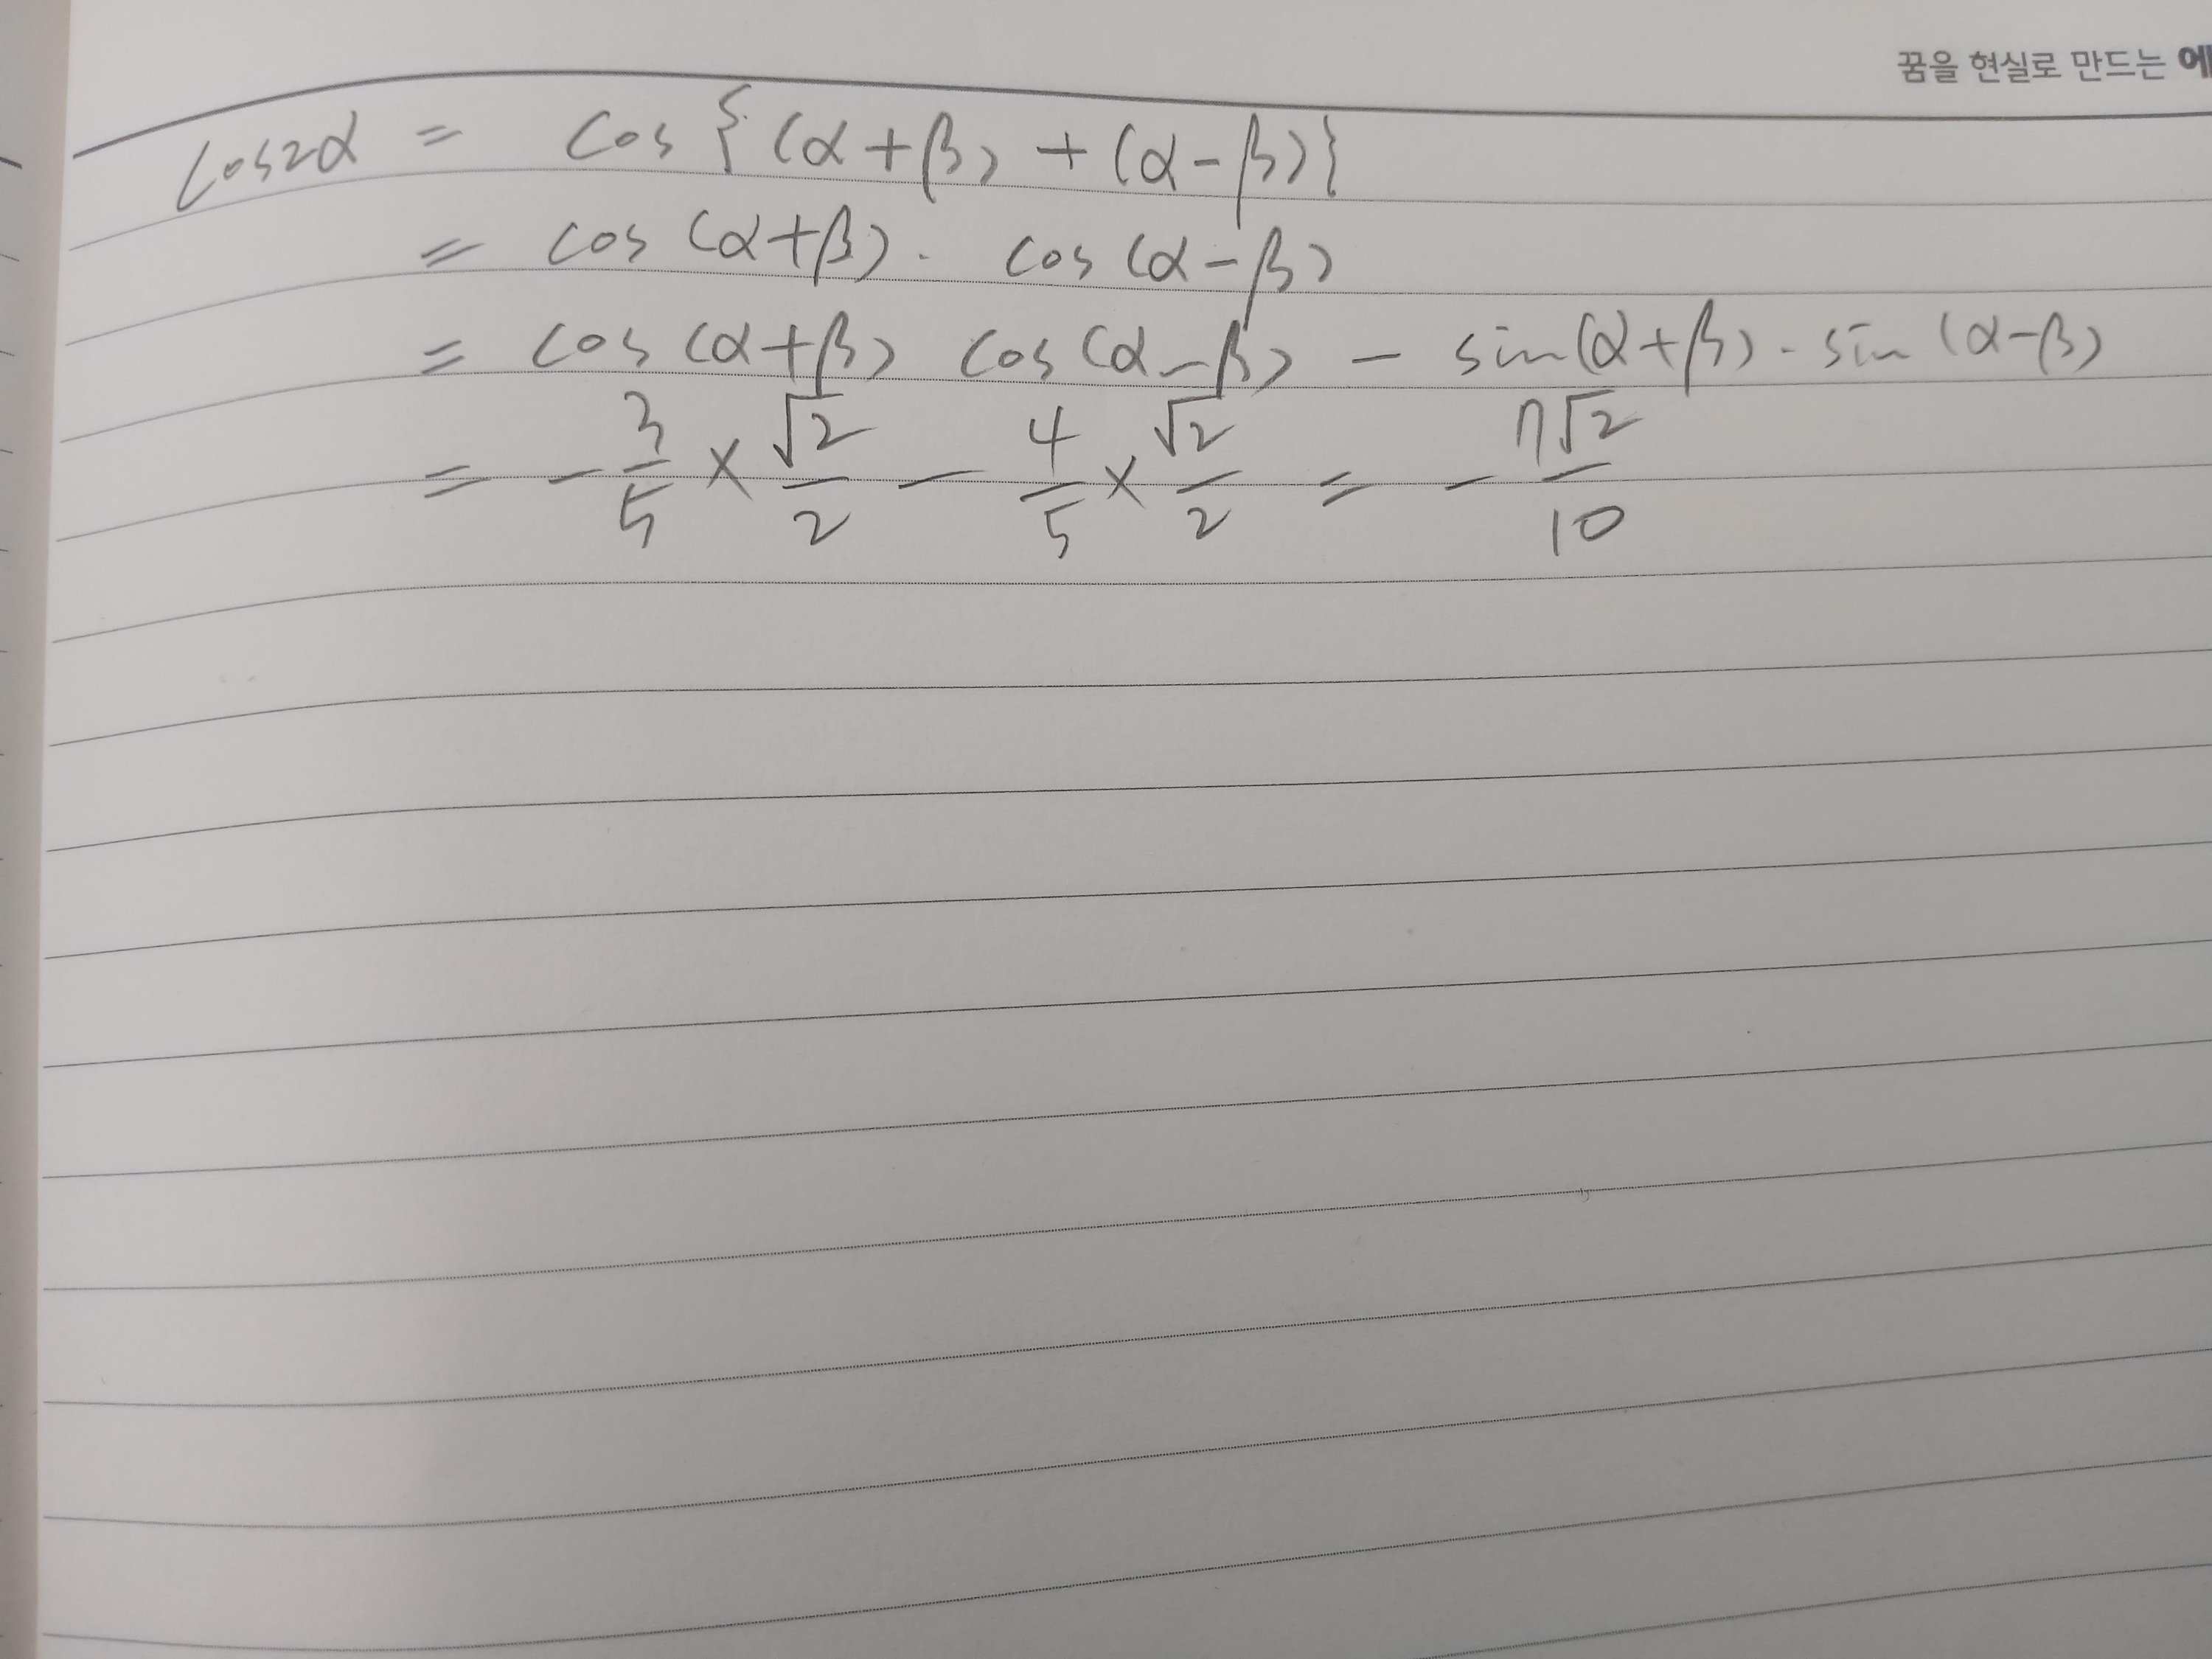 꿈을 현실로 만드는 에
cos2α = cos{(α+β) + (α-β)}
= cos(α+β)· cos(α-β)
= cos(α+β) cos(α-β) - sin(α+β)·sin(α-β)
= -3/5 × √2/2 - 4/5 × √2/2 = - 7√2/10